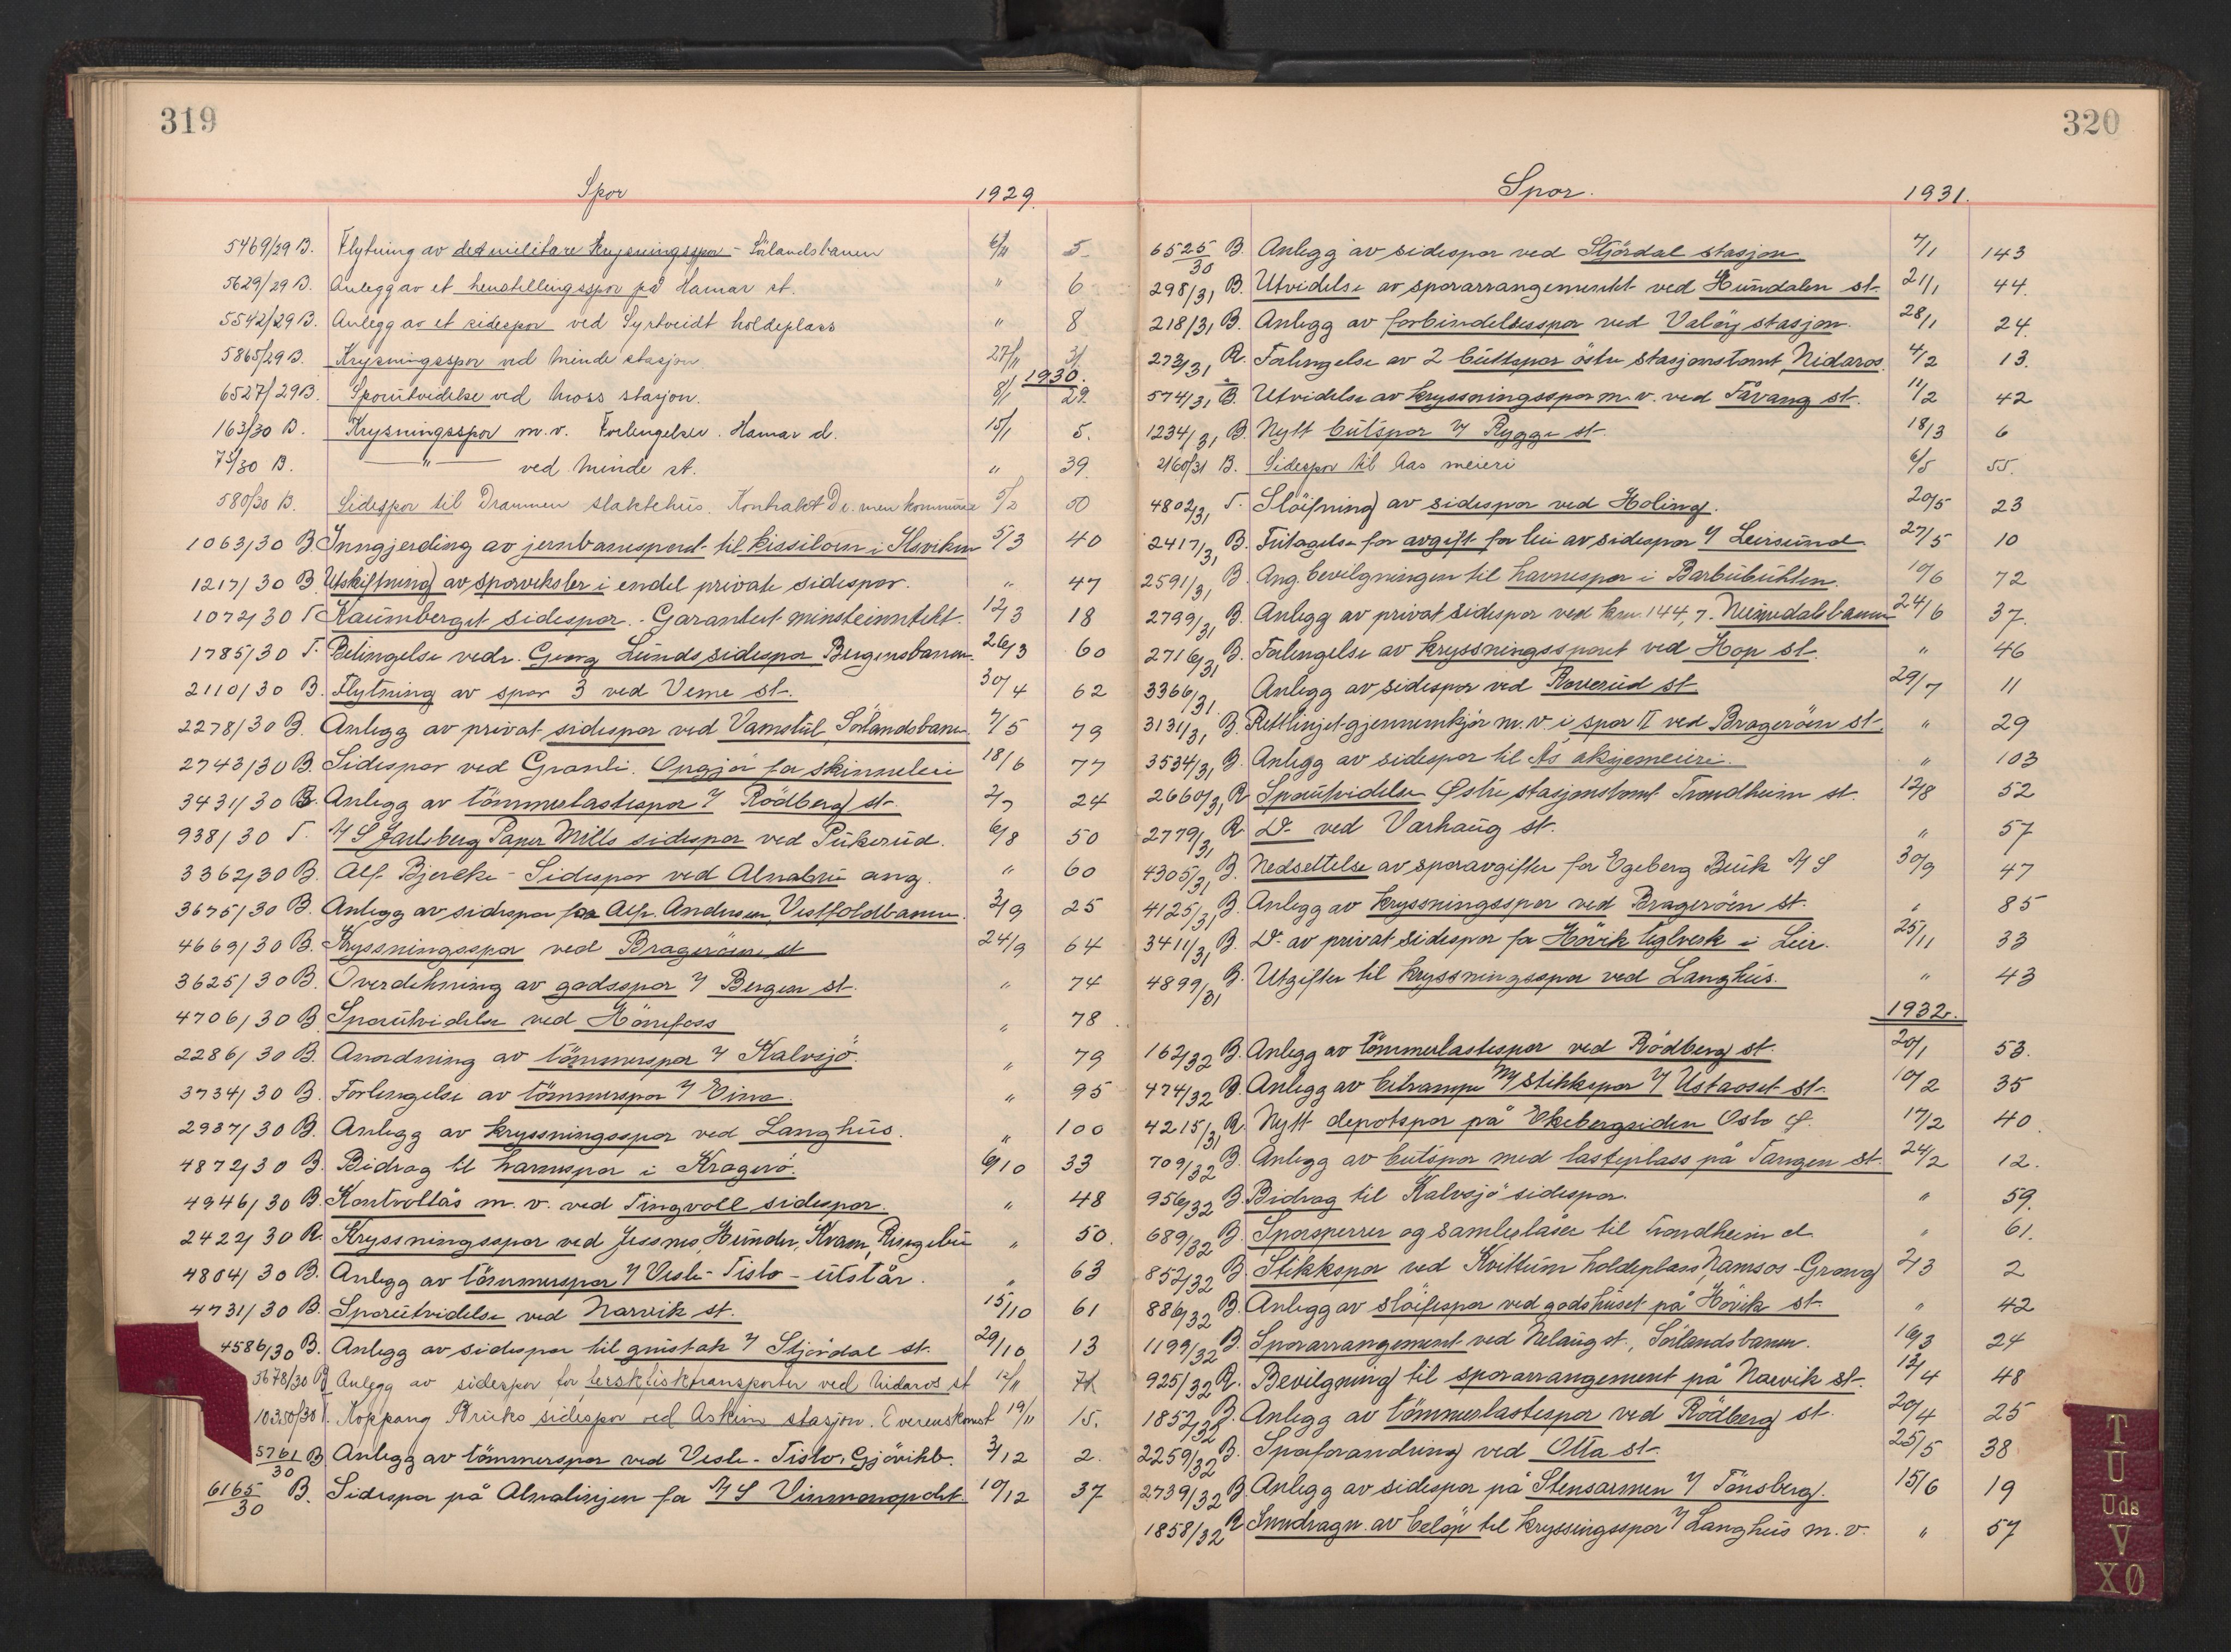 319
Spor 1929.
5469/29 B. Flytning av det militære krysningsspor - Sörlandsbanen 6/11 5
5629/29 B. Anlegg av et henstellingsspor på Hamar st. " 6
5542/29 B. Anlegg av et sidespor ved Syrtveidt holdeplass " 8
5865/29 B. Krysningsspor ved Minde stasjon 27/11 31
1930.
6527/29 B. Sporutvidelse ved Moss stasjon. 8/1 29.
163/30 B. Krysningsspor m.v. Forlengelser. Hamar d. 15/1 5.
73/30 B. — " — ved Minde st. " 39.
580/30 B. Sidespor til Drammen slaktehus. Kontrakt Dr.men kommune 5/2 50
1063/30 B. Inngjerding av jernbanesporet til kissiloen i Ilsviken 5/3 40
1217/30 B. Utskiftning av sporveksler i endel private sidespor. " 47
1072/30 T. Kaumberget sidespor. - Garantert minsteinntekt. 12/3 18
1785/30 T. Betingelse vedr. Georg Lunds sidespor Bergensbanen. 26/3 60
2110/30 B. Flytning av spor 3 ved Veme st. 30/4 62
2278/30 B. Anlegg av privat sidespor ved Vamstul, Sörlandsbanen 7/5 79
2743/30 B. Sidespor ved Granli. Opgjör for skinneleie 18/6 77
3431/30 B. Anlegg av tömmerlastespor v/ Rödberg st. 2/7 24
938/30 T. A/S Jarlsberg Paper Mills sidespor ved Pukerud. 6/8 50
3362/30 B. Alf Bjercke - Sidespor ved Alnabru ang. " 60
3675/30 B. Anlegg av sidespor for Alf. Andersen, Vestfoldbanen. 3/9 25
4669/30 B. Kryssningsspor ved Brageröen st 24/9 64
3625/30 B. Overdekning av godsspor v/ Bergen st. " 74
4706/30 B. Sporutvidelse ved Hönefoss " 78
2286/30 B. Anordning av tömmerspor v/ Kalvsjö. " 79
3734/30 B. Forlengelse av tömmerspor v/ Eina. " 95
2937/30 B. Anlegg av kryssningsspor ved Langhus. " 100
4872/30 B. Bidrag til havnespor i Kragerö. 6/10 33
4946/30 B. Kontrollås m.v. ved Tingvoll sidespor. " 48
2422/30 R. Kryssningsspor ved Jessnes, Hunder, Kvam, Ringebu " 50.
4804/30 B. Anlegg av tömmerspor v/ Vesle-Tislo - utstår. " 63
4731/30 B. Sporutvidelse ved Narvik st. 15/10 61
4586/30 B. Anlegg av sidespor til grustak v/ Stjördal st. 29/10 13
5678/30 B. Anlegg av sidespor for ferskfisktransporter ved Nidaros st 12/11
10350/30 T. Koppang Bruks sidespor ved Askim stasjon. Overenskomst 19/11 15.
5761/30 B. Anlegg av tömmerspor ved Vesle-Tislo, Gjövikb. 3/12 2.
6165/30 B. Sidespor på Alnalinjen for A/S Vinmonopolet. 10/12 37
320
Spor. 1931.
6525/30 B. Anlegg av sidespor ved Stjördal stasjon 7/1 143
298/31 B. Utvidelse av sporarrangementet ved Hundalen st. 21/1 44.
218/31 B. Anlegg av forbindelsesspor ved Valöy stasjon. 28/1 24.
273/31 R. Forlengelse av 2 buttspor östre stasjonstomt, Nidaros. 4/2 13.
574/31 B. Utvidelse av kryssningsspor m.v. ved Fåvang st. 11/2 42
1234/31 B. Nytt buttspor v/ Rygge st. 18/3 6
2160/31 B. Sidespor til Aas meieri 6/5 55.
4802/31 T. Slöifning av sidespor ved Holing. 20/5 23
2417/31 B. Fritagelse for avgift for leie av sidespor v/ Leirsund 27/5 10
2591/31 B. Ang. bevilgningen til havnespor i Barbubukten. 10/6 72
2799/31 B. Anlegg av privat sidespor ved km. 144,7. Numedalsbanen 24/6 37.
2716/31 B. Forlengelse av kryssningssporet ved Hop st. " 46
3366/31 Anlegg av sidespor ved Roverud st. 29/7 11
3131/31 B. Rettlinjet gjennemkjör m.v. i spor II ved Brageröen st. " 29
3534/31 B. Anlegg av sidespor til Ås aksjemeieri. " 103
2660/31 R. Sporutvidelse Østre stasjonstomt Trondheim st. 12/8 52
2779/31 R. Do ved Varhaug st. " 57
4305/31 B. Nedsettelse av sporavgifter for Egeberg Bruk A/S 30/9 47
4125/31 B. Anlegg av kryssningsspor ved Brageröen st. " 85
3411/31 B. Do av privat sidespor for Hörvik teglverk i Lier. 25/11 33
4899/31 B. Utgifter til kryssningsspor ved Langhus. " 43
1932.
162/32 B. Anlegg av tömmerlastespor ved Rödberg st. 20/1 53.
474/32 B. Anlegg av bilrampe m/ stikkspor v/ Ustaoset st. 10/2 35
4215/31 R. Nytt depotspor på Ekebergsiden Oslo Ø. 17/2 40.
709/32 B. Anlegg av buttspor med lasteplass på Tangen st. 24/2 12.
956/32 B. Bidrag til Kalvsjö sidespor. " 59.
689/32 B. Sporsperrer og samlelåser til Trondheim d. " 61.
852/32 B. Stikkspor ved Kvittum holdeplass, Namsos-Grong 2/3 2
886/32 B. Anlegg av slöifespor ved godshuset på Hövik st. " 42
1199/32 B. Sporarrangement ved Nelaug st., Sörlandsbanen. 16/3 24
925/32 R. Bevilgning til sporarrangement på Narvik st. 13/4 48
1852/32 B. Anlegg av tömmerlastespor ved Rödberg st. 20/4 25
2259/32 B. Sporforandring ved Otta st. 25/5 38
2739/32 B. Anlegg av sidespor på Stensarmen v/ Tönsberg. 15/6 19
1858/32 R. Inndragn. av belöp til kryssingsspor v/ Langhus m.v. " 57
T
U
Uds
V
XØ